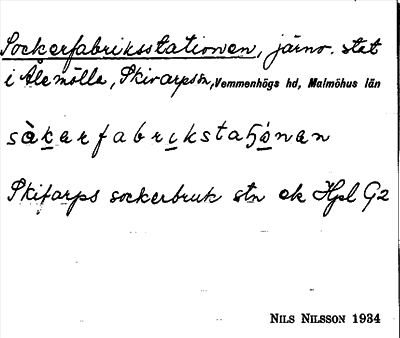 Sockerfabriksstationen, järnv. stat
i Ålemölla, Skivarpsån, Vemmenhögs hd, Malmöhus län
sàkerfabrikstaɧónen
Skifarps sockerbruk stn ek Hpl G2
NILS NILSSON 1934